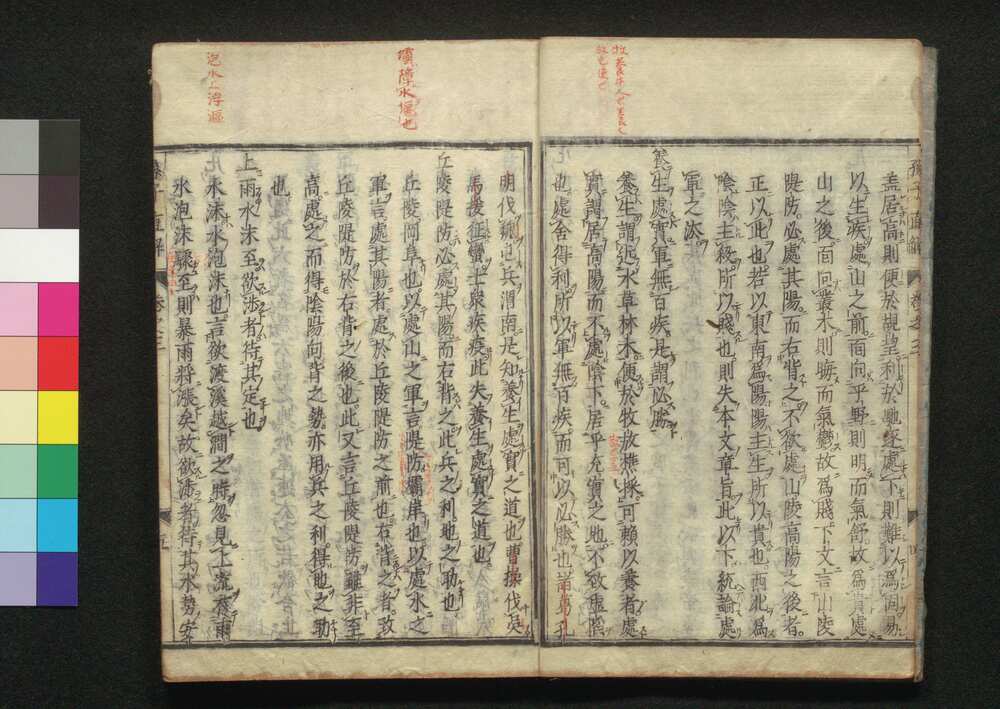 孟居高則便於覘望利於馳逐處下則難以爲固易
以生疾處山之前面向平野則明而氣舒故爲貴處
山之後面向叢木則晦而氣鬱故爲賤下文言山陵
隄防必處其陽而右背之不欲處山陵高陽之後者
正以此也若以東南爲陽陽主生所以貴也西北爲
陰陰主殺所以賤也則失本文章旨此以下統論處
軍之法
養生處實軍無百疾是謂必勝
養生謂近水草林木便於牧放樵採可賴以養者處
實謂居高陽而不處陰下居乎充實之地不致虛陷
也處舍得利所以軍無百疾而可以必勝也諸葛孔
明伐魏屯兵渭南是知養生處實之道也曹操伐吳
馬援征蠻士衆疾疫此失養生處實之道也
丘陵隄防必處其陽而右背之此兵之利地之助也
丘陵岡阜也以處山之軍言隄防壩岸也以處水之
軍言處其陽者處於丘陵隄防之前也右背之者致
丘陵隄防於右背之後也此又言丘陵隄防雖非至
高處之而得陰陽向背之勢亦用兵之利得地之助
也
上雨水沫至欲涉者待其定也
水沫水泡沫也言欲渡溪越澗之時忽見上流有雨
水泡沫驟至則暴雨將漲矣故欲涉者待其水勢安
泡水上浮漚
孫子直解
卷之三